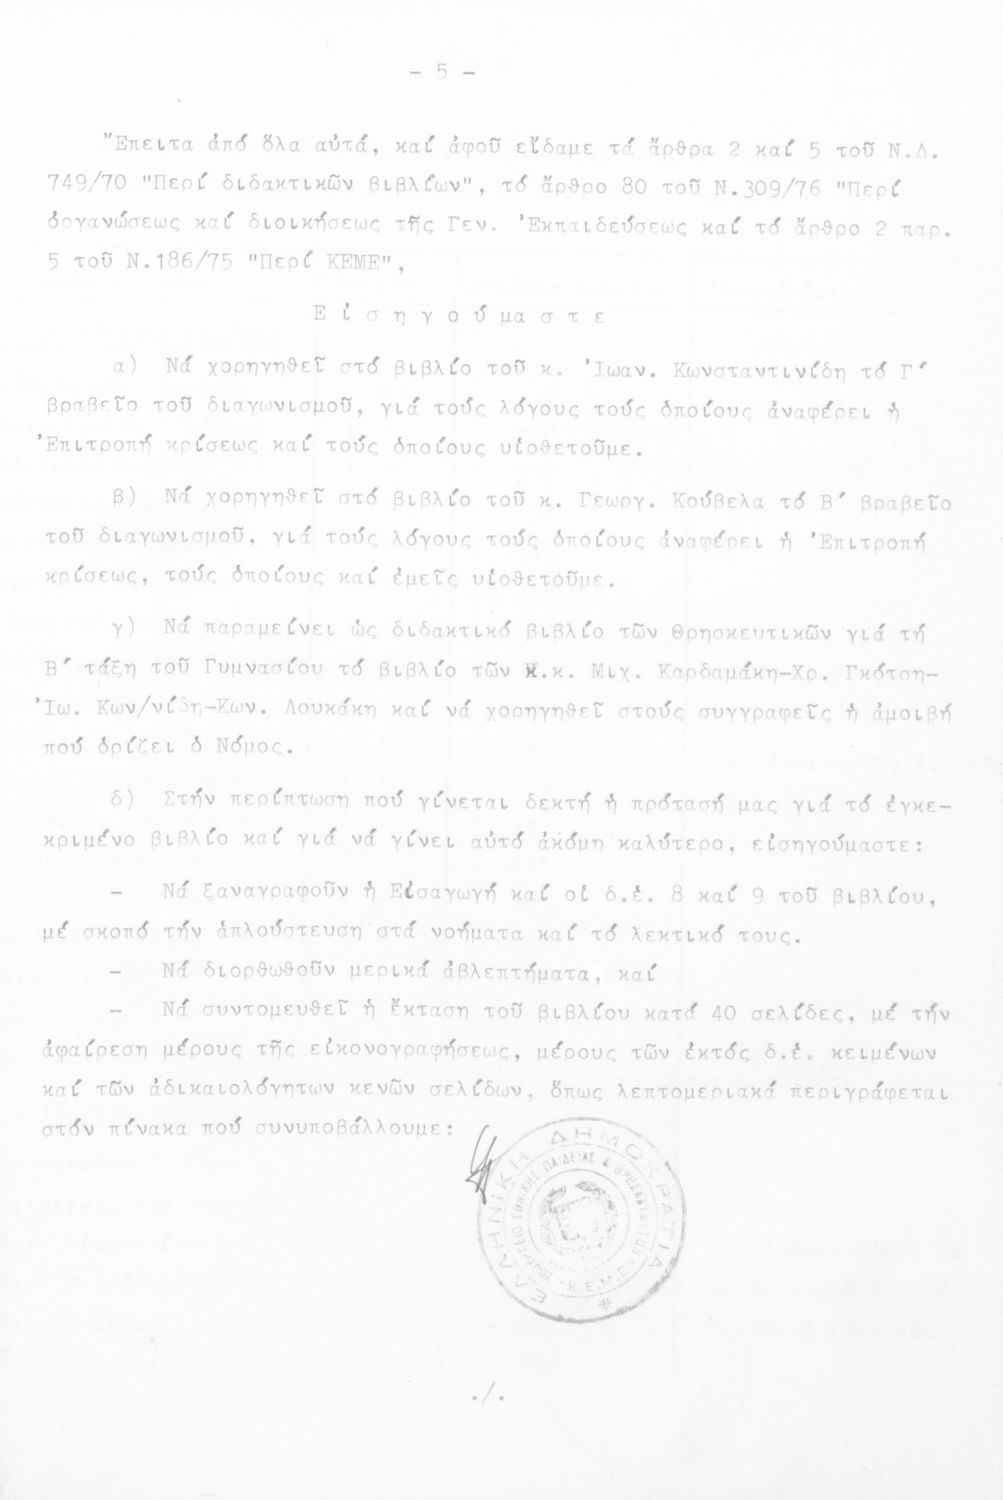 - 5 -
Ἔπειτα ἀπό ὅλα αὐτά, καί ἀφοῦ εἴδαμε τά ἄρθρα 2 καί 5 τοῦ Ν.Δ.
749/70 "Περί διδακτικῶν βιβλίων", τό ἄρθρο 80 τοῦ Ν.309/76 "Περί
ὀργανώσεως καί διοικήσεως τῆς Γεν. Ἐκπαιδεύσεως καί τό ἄρθρο 2 παρ.
5 τοῦ Ν.186/75 "Περί ΚΕΜΕ",
Ε ἰ σ η γ ο ύ μ α σ τ ε
α) Νά χορηγηθεῖ στό βιβλίο τοῦ κ. Ἰωαν. Κωνσταντινίδη τό Γ΄
βραβεῖο τοῦ διαγωνισμοῦ, γιά τούς λόγους τούς ὁποίους ἀναφέρει ἡ
Ἐπιτροπή κρίσεως καί τούς ὁποίους υἱοθετοῦμε.
β) Νά χορηγηθεῖ στό βιβλίο τοῦ κ. Γεωργ. Κούβελα τό Β΄ βραβεῖο
τοῦ διαγωνισμοῦ, γιά τούς λόγους τούς ὁποίους ἀναφέρει ἡ Ἐπιτροπή
κρίσεως, τούς ὁποίους καί ἐμεῖς υἱοθετοῦμε.
γ) Νά παραμείνει ὡς διδακτικό βιβλίο τῶν Θρησκευτικῶν γιά τή
Β΄ τάξη τοῦ Γυμνασίου τό βιβλίο τῶν κ.κ. Μιχ. Καρδαμάκη-Χρ. Γκότση-
Ἰω. Κων/νίδη-Κων. Λουκάκη καί νά χορηγηθεῖ στούς συγγραφεῖς ἡ ἀμοιβή
πού ὁρίζει ὁ Νόμος.
δ) Στήν περίπτωση πού γίνεται δεκτή ἡ πρότασή μας γιά τό ἐγκε-
κριμένο βιβλίο καί γιά νά γίνει αὐτό ἀκόμη καλύτερο, εἰσηγούμαστε:
- Νά ξαναγραφοῦν ἡ Εἰσαγωγή καί οἱ δ.ἑ. 8 καί 9 τοῦ βιβλίου,
μέ σκοπό τήν ἁπλούστευση στά νοήματα καί τό λεκτικό τους.
- Νά διορθωθοῦν μερικά ἀβλεπτήματα, καί
- Νά συντομευθεῖ ἡ ἔκταση τοῦ βιβλίου κατά 40 σελίδες, μέ τήν
ἀφαίρεση μέρους τῆς εἰκονογραφήσεως, μέρους τῶν ἐκτός δ.ἑ. κειμένων
καί τῶν ἀδικαιολόγητων κενῶν σελίδων, ὅπως λεπτομεριακά περιγράφεται
στόν πίνακα πού συνυποβάλλουμε:
ΕΛΛΗΝΙΚΗ ΔΗΜΟΚΡΑΤΙΑ
ΥΠΟΥΡΓΕΙΟ ΕΘΝΙΚΗΣ ΠΑΙΔΕΙΑΣ & ΘΡΗΣΚΕΥΜΑΤΩΝ
Κ.Ε.Μ.Ε.
./.